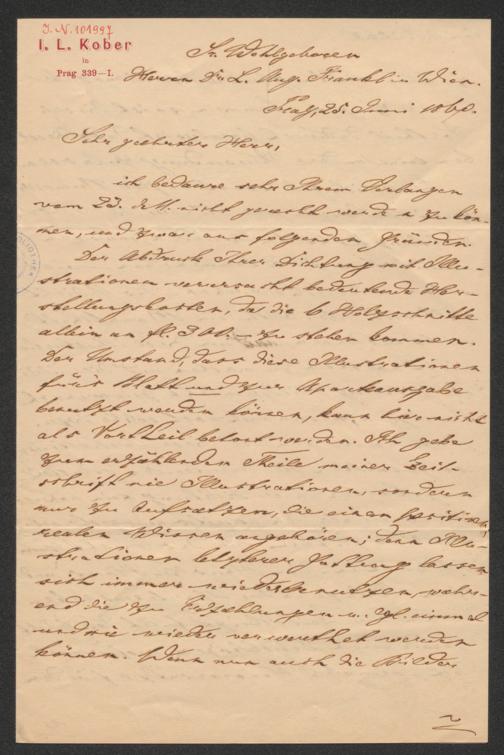 J. N. 101997
I. L. Kober
in
Prag 339–I.
Sr. Wohlgeboren
Herrn Dr. L. Aug. Frankl in Wien.
Prag, 25. Juni 186
Sehr geehrter Herr,
ich bedaure sehr Ihrem Verlangen
vom 23. d. M. nicht gerecht werden zu kön-
nen, und zwar aus folgenden Gründen.
Der Abdruck Ihrer Dichtung mit Illu-
strationen verursacht bedeutende Her-
stellungskosten, da die 6 Holzschnitte
allein an fl. 300.— zu stehen kommen.
Der Umstand, dass diese Illustrationen
für's Blatt und zur Apartausgabe
benutzt werden können, kann hier nicht
als Vortheil betont werden. Ich gebe
zum erzählenden Theile meiner Zeit-
schrift nie Illustrationen, sondern
nur zu Aufsätzen, die einem positiv
realen Wissen angehören; denn Illu-
strationen letzterer Gattung lassen
sich immer wieder benutzen, währ-
end die zu Erzählungen u. dgl. einmal
und nie wieder verwerthet werden
können. Wenn nun auch die Bilder